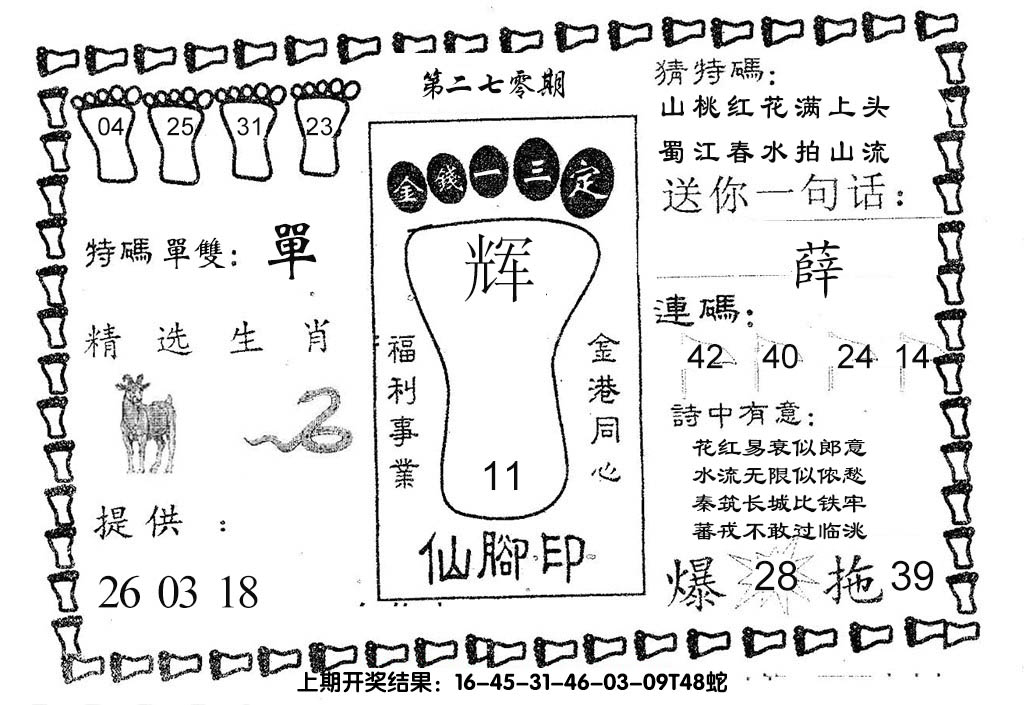 第二七零期
04 25 31 23
特碼單雙：單
精选生肖
提供：
26 03 18
金錢一三定
辉
福利事業
金港同心
11
仙腳印
猜特碼：
山桃红花满上头
蜀江春水拍山流
送你一句话：
薛
連碼：
42 40 24 14
詩中有意：
花红易衰似郎意
水流无限似侬愁
秦筑长城比铁牢
蕃戎不敢过临洮
爆 28 拖 39
上期开奖结果：16-45-31-46-03-09T48蛇